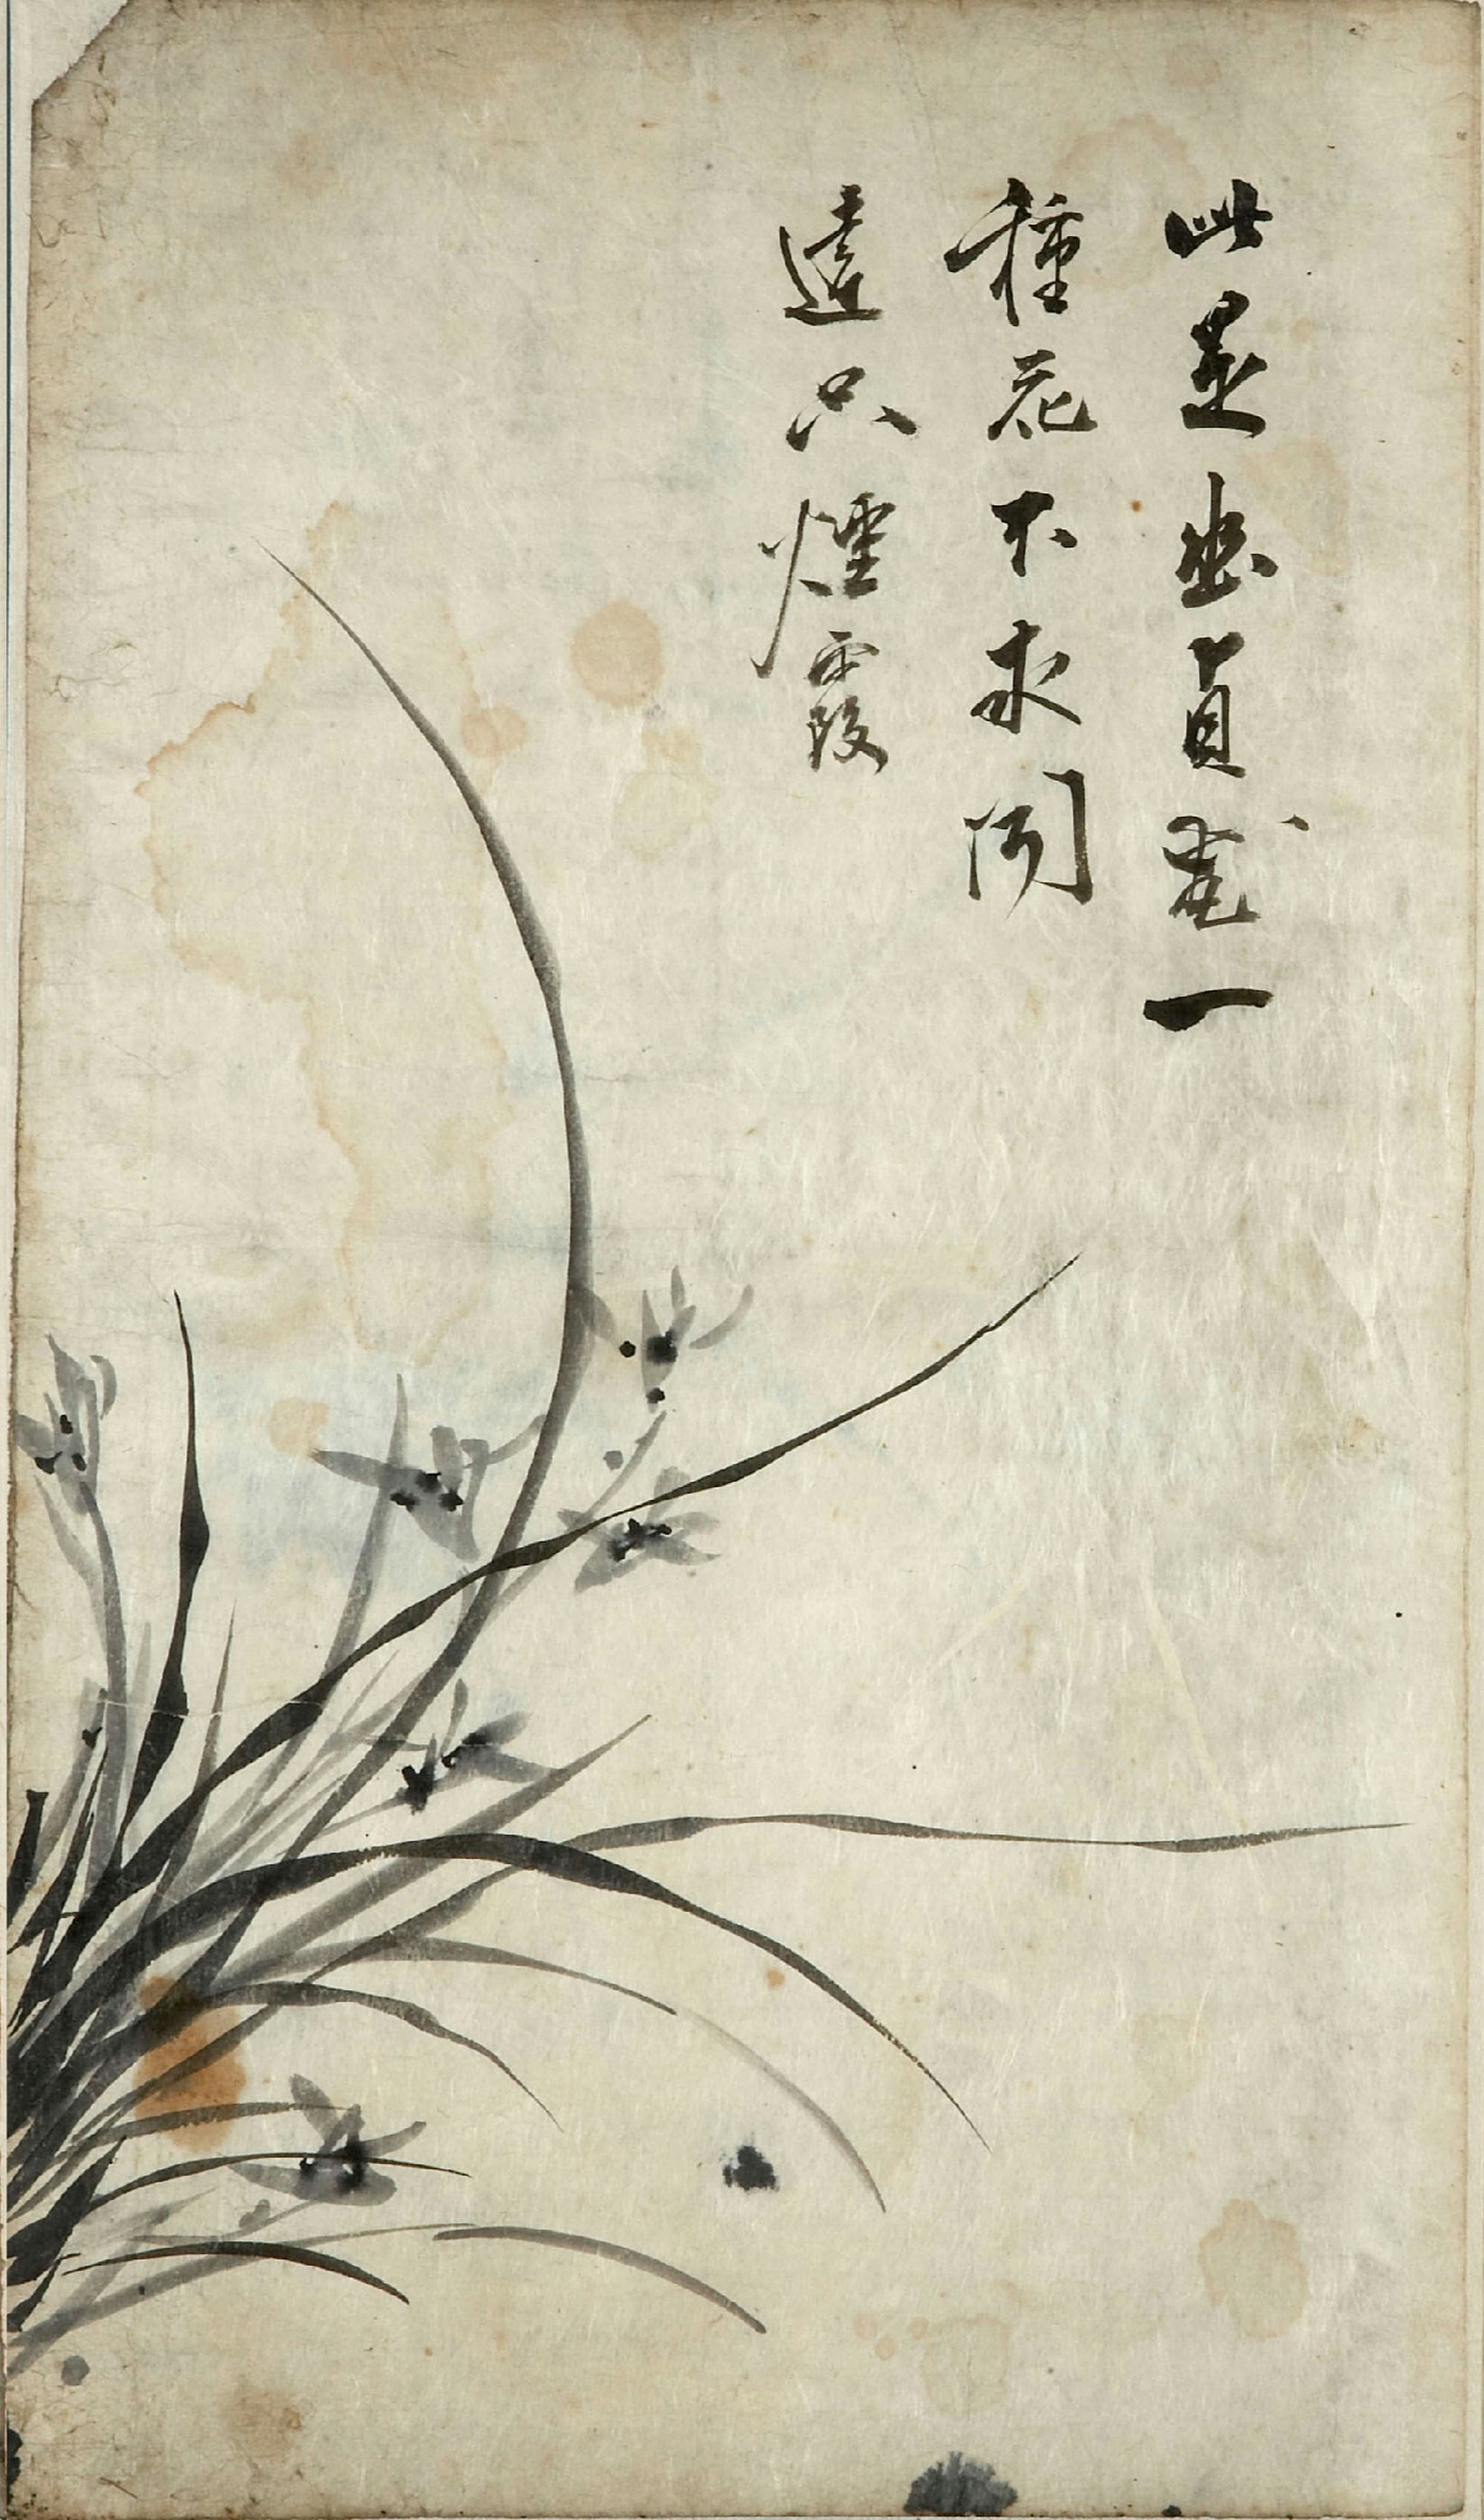 此是幽貞一
種花不求聞
達只煙霞